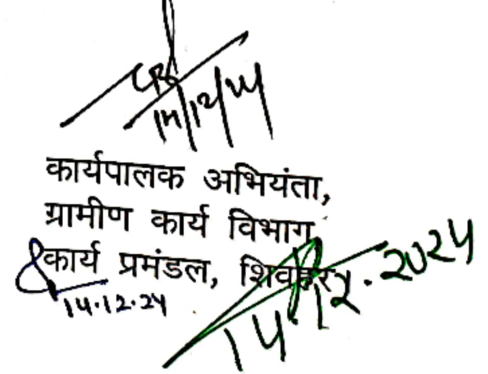 14/12/24
कार्यपालक अभियंता,
ग्रामीण कार्य विभाग,
कार्य प्रमंडल, शिवहर
14.12.24
14.12.2024